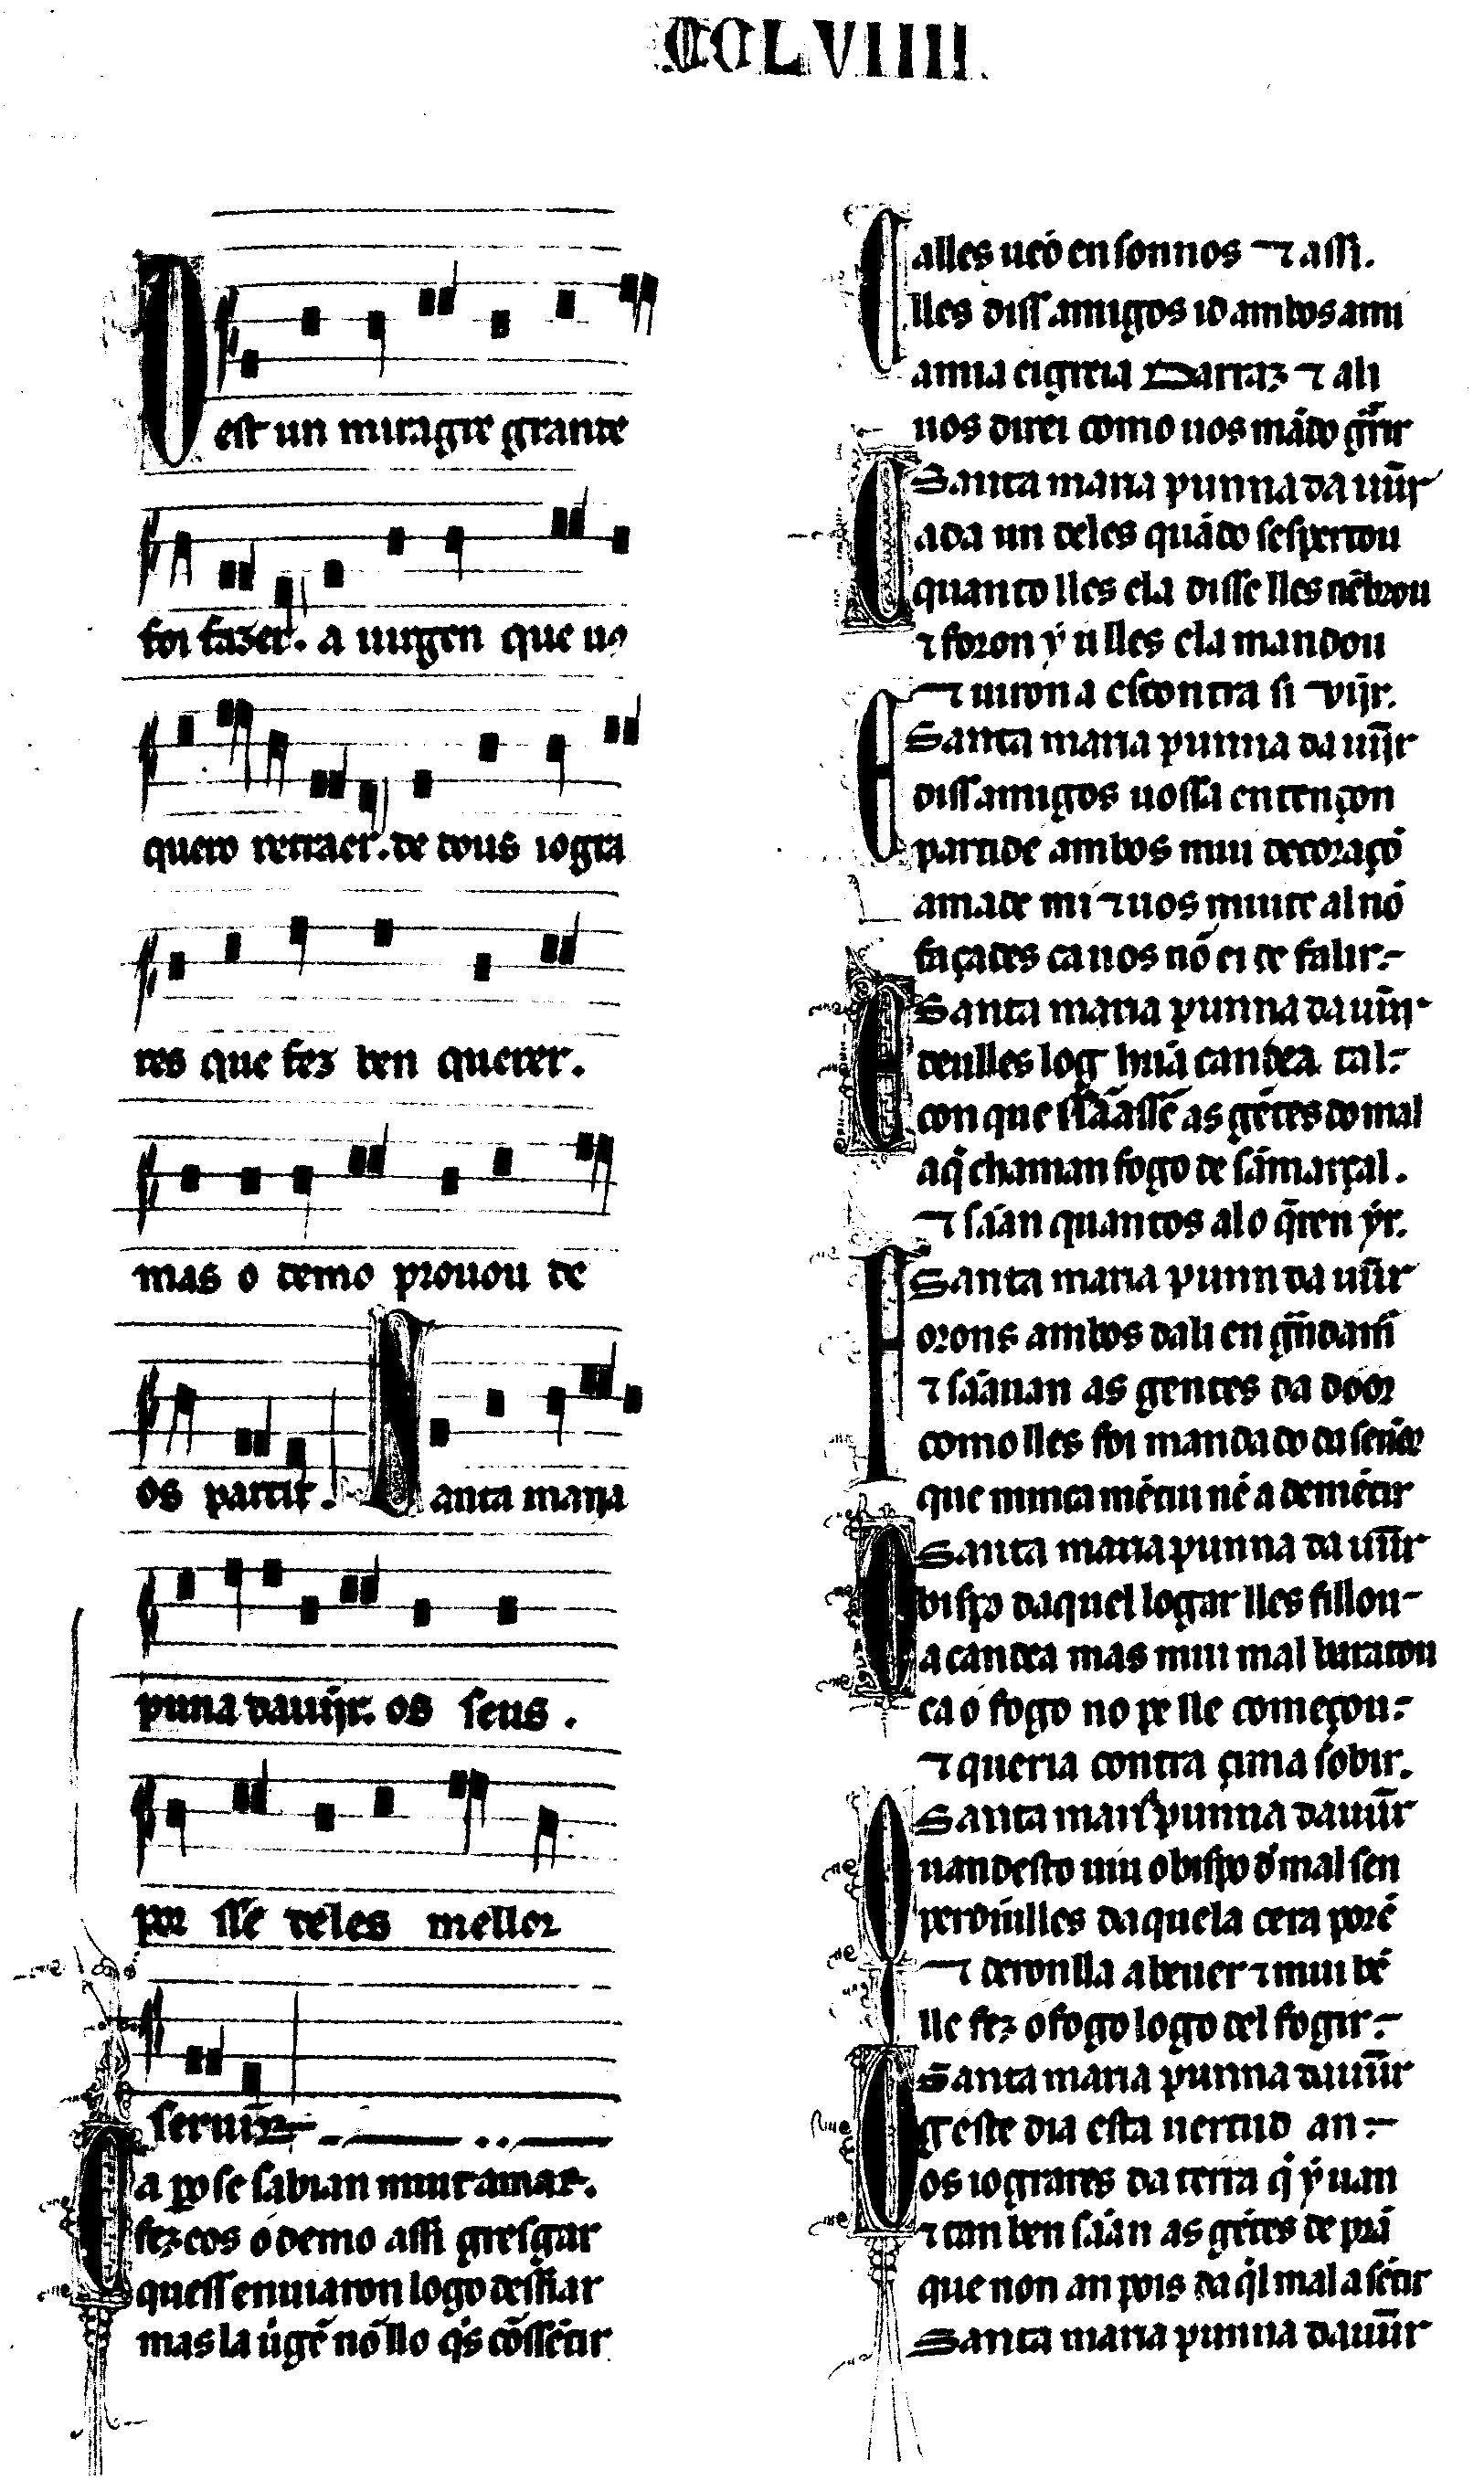 CCLVIIII.
Dest un miragre grande
foi fazer. a uirgen que uo
quero retraer. de dous iogra
res que fez ben querer.
mas o demo prouou de
os partir. Santa maria
puna dauijr. os seus.
por sse deles mellor
seruir
Ca ꝑo se sabian muit amar.
fez eos o demo assi gresgar
quess enuiaron logo desfiar
mas la uírgẽ nõ llo q̇s cõssẽtir
E alles uẽo en sonnos ⁊ assi.
lles diss amigos id ambos a mi
a mia eigreia Darraz ⁊ ali
uos direi como uos mãdo g̃rir
Santa maria punna da uiĩr
Cada un deles quãdo sespertou
quanto lles ela disse lles nẽbrou
⁊ foron ý u lles ela mandou
⁊ uiron a escontra si vĩjr.
Santa maria punna da uiĩjr
E diss amigos uossa entençon
partide ambos mui de coraçõ
amade mi ⁊ uos muit e al nõ
façades ca uos nõ ei de falir.
Santa maria punna da uiĩr
E deulles log hũa candea tal
con que ssãassẽ as gẽtes do mal
a q̇ chaman fogo de sã marçal.
⁊ sáian quantos alo q̃ren ýr.
Santa maria punn da uiĩr
Forons ambos dali en g̃ndam̃
⁊ sãauan as gentes da door
como lles foi mandado da señor
que nunca mẽtiu nẽ á de mẽtir
Santa maria punna da uiĩr
O bispo daquel logar lles fillou
a candea mas mui mal baratou
ca o fogo no pe lle começou
⁊ queria contra çima sobir.
Santa maria punna da uiĩr
Quand esto uiu o bispo d mal sen
perdõulles daquela cera porẽ
⁊ deronlla a beuer ⁊ mui bẽ
lle fez o fogo logo del fogir.
Santa maria punna da uiĩr
Og este dia esta uertud an
os iograres da terra q̇ ý uan
⁊ tan ben sãan as gẽtes de prã
que non an pois daq̇l mal a sẽtir
Santa maria punna da uiĩr